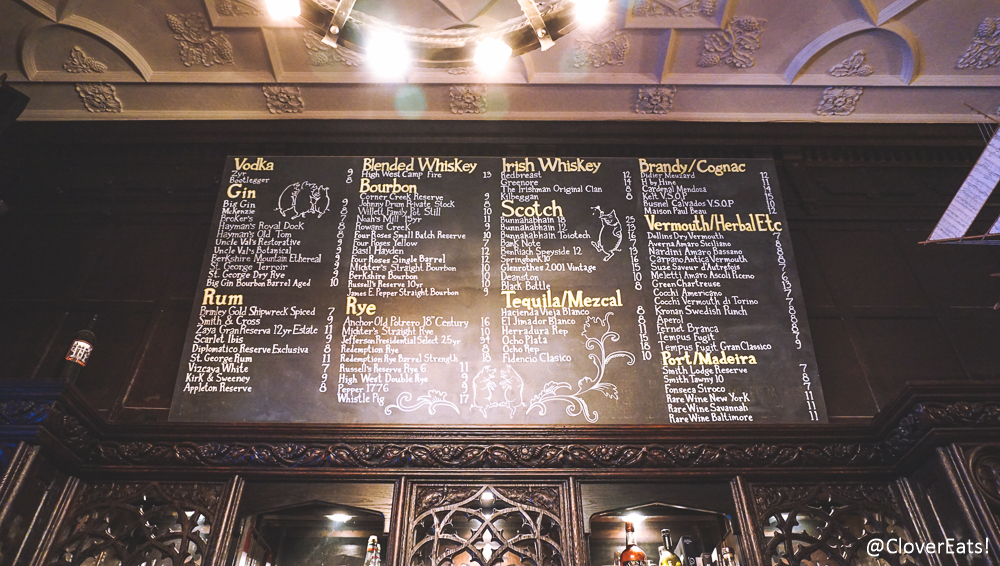 Vodka
Zyr 9
Bootlegger 8
Gin
Big Gin 9
McKenzie
Breker's
Hayman's Royal Dock
Hayman's Old Tom
Uncle Val's Restorative
Uncle Val's Botanical
Berkshire Mountain Ethereal
St. George Terroir
St. George Dry Rye 9
Big Gin Bourbon Barrel Aged 10
Rum
Brinley Gold Shipwreck Spiced 7
Smith & Cross 9
Zaya Gran Reserva 12yr Estate 11
Scarlet Ibis 9
Diplomatico Reserve Exclusiva 8
St. George Rum 11
Vizcaya White 7
Kirk & Sweeney 9
Appleton Reserve 8
Blended Whiskey
High West Camp Fire 13
Bourbon
Corner Creek Reserve
Johnny Drum Private Stock
Willett Family Pot Still
Noah's Mill 15yr
Rowans Creek
Four Roses Small Batch Reserve
Four Roses Yellow
Basil Hayden
Four Roses Single Barrel
Michter's Straight Bourbon
Berkshire Bourbon
Russell's Reserve 10yr
James E. Pepper Straight Bourbon 9
Rye
Anchor Old Potrero 18th Century 16
Michter's Straight Rye 10
Jefferson Presidential Select 25yr
Redemption Rye 8
Redemption Rye Barrel Strength
Russell's Reserve Rye 6 11
High West Double Rye 9
Pepper 1776 9
Whistle Pig 17
Irish Whiskey
Redbreast 12
Greenore
The Irishman Original Clan
Kilbeggan 8
Scotch
Bunnahabhain 18 25
Bunnahabhain 12
Bunnahabhain Toietech
Bank Note
BenRiach Speyside 12
Springbank 10
Glenrothes 2001 Vintage
Deanston
Black Bottle 8
Tequila/Mezcal
Hacienda Vieja Blanco 8
El Jimador Blanco
Herradura Rep
Ocho Plata
Ocho Rep
Fidencio Clasico 10
Brandy/Cognac
Didier Meuzard 12
H by Hine
Cardenal Mendoza
Kelt V.S.O.P
Busnel Calvados V.S.O.P
Maison Paul Beau 12
Vermouth/Herbal Etc
Dolins Dry Vermouth 7
Averna Amaro Siciliano
Nardini Amaro Bassano
Carpano Antica Vermouth
Suze Saveur d'Autrefois
Meletti Amaro Ascoli Piceno
Green Chartreuse
Cocchi Americano
Cocchi Vermouth di Torino
Kronan Swedish Punch
Aperol
Fernet Branca
Tempus Fugit
Tempus Fugit Gran Classico 9
Port/Madeira
Smith Lodge Reserve 7
Smith Tawny 10 8
Fonseca Siroco 7
Rare Wine New York 11
Rare Wine Savannah 11
Rare Wine Baltimore 11
@CloverEats!